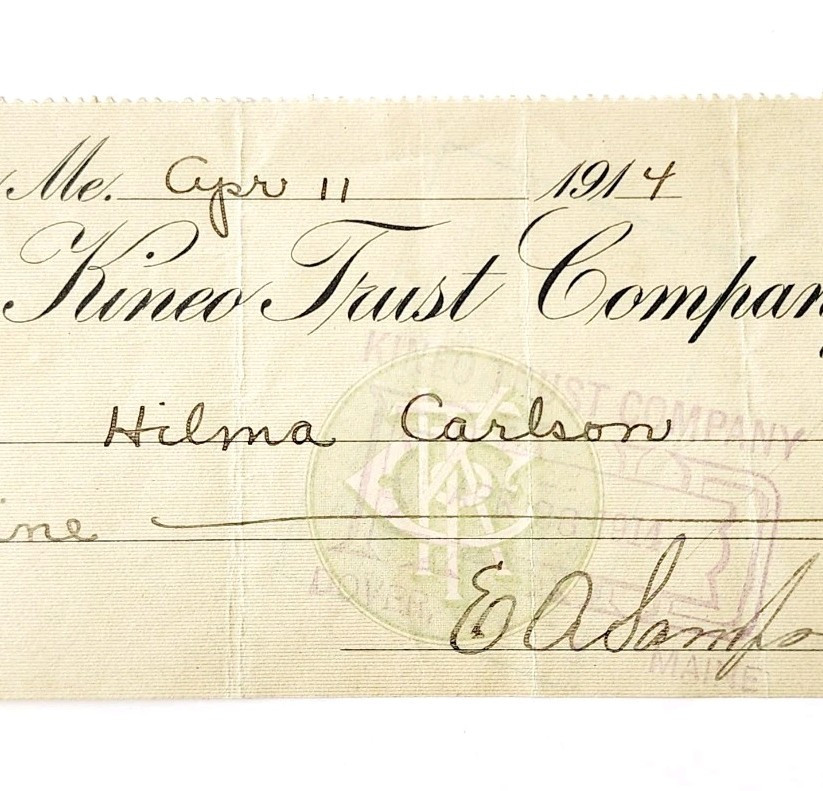 Me. Apr 11 1914
Kineo Trust Company
Hilma Carlson
KINEO TRUST COMPANY
ine
1914
DOVER
E A Samps
MAINE